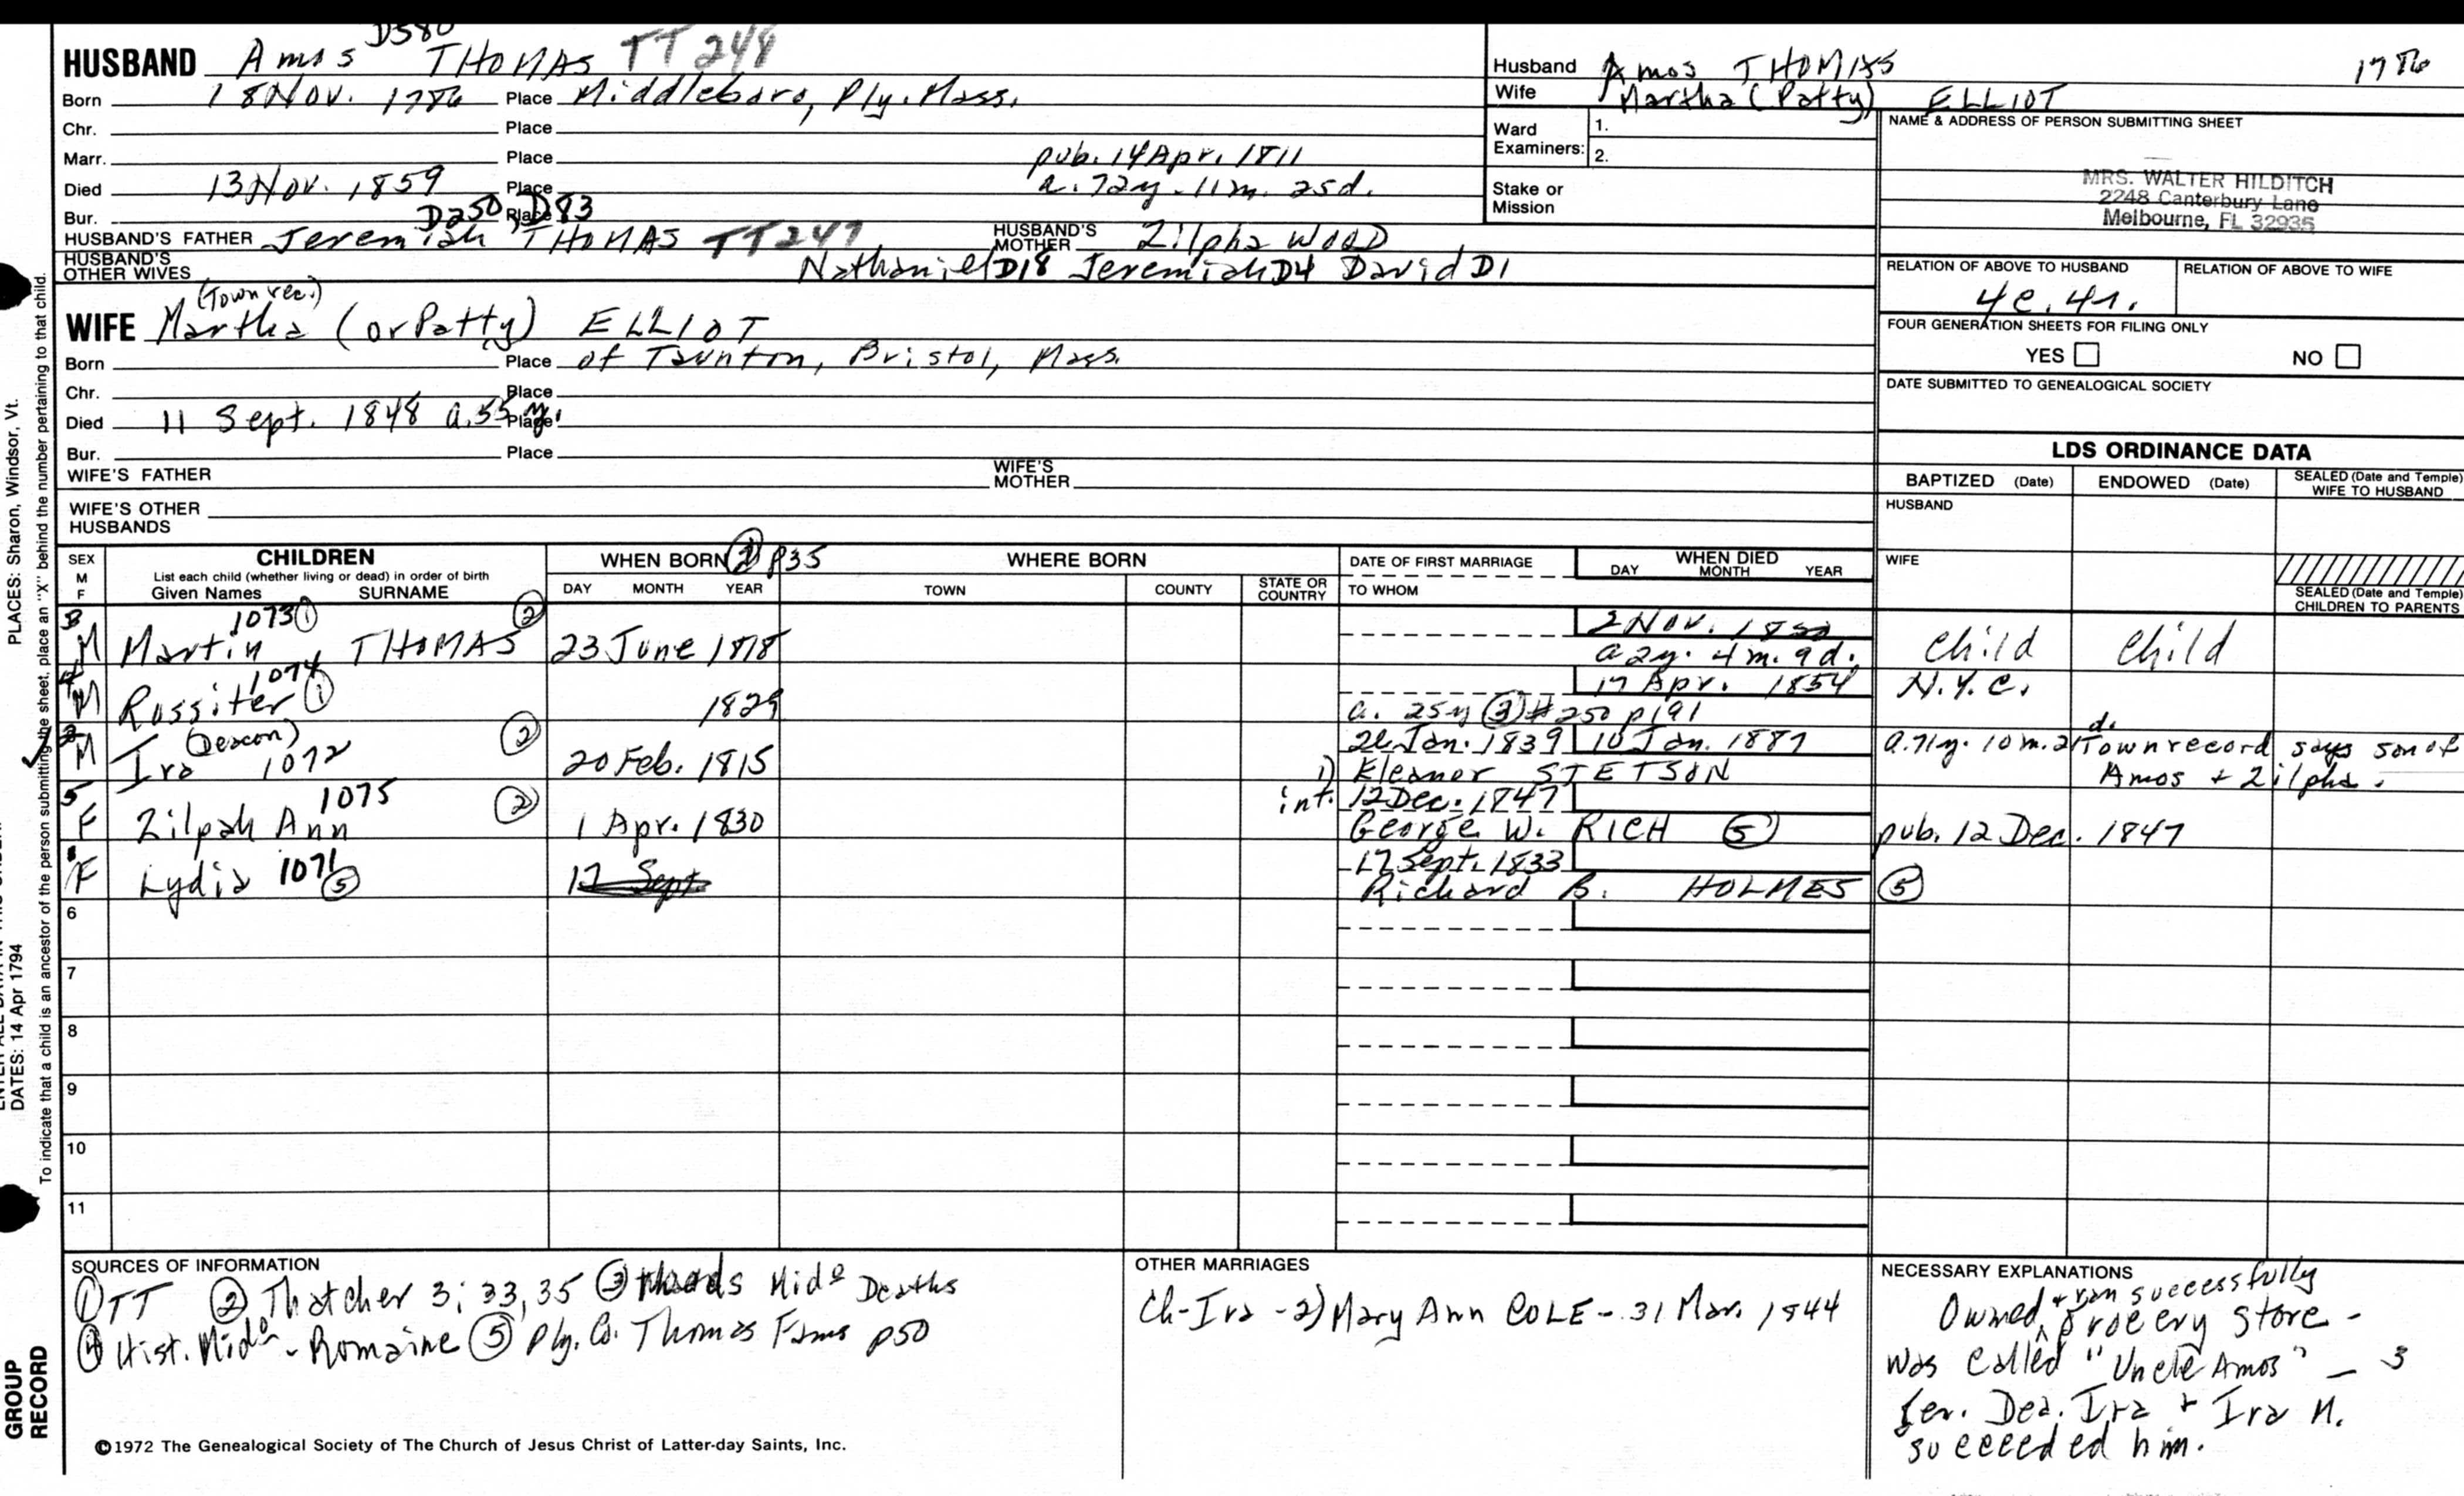 D580
HUSBAND Amos THOMAS TT 248
Born 18 Nov. 1786 Place Middleboro, Ply. Mass.
Chr. Place
Marr. Place pub. 14 Apr. 1811
Died 13 Nov. 1859 Place a. 72y. 11m. 25d.
Bur. Place
D250, D83
HUSBAND'S FATHER Jeremiah THOMAS TT247 HUSBAND'S MOTHER Zilpha WOOD
HUSBAND'S OTHER WIVES Nathaniel D18 Jeremiah D4 David D1
(Town rec.)
WIFE Martha (or Patty) ELLIOT
Born Place of Taunton, Bristol, Mass.
Chr. Place
Died 11 Sept. 1848 a. 55 y. Place
Bur. Place
WIFE'S FATHER WIFE'S MOTHER
WIFE'S OTHER HUSBANDS
Husband Amos THOMAS 1786
Wife Martha (Patty) ELLIOT
Ward Examiners: 1.
2.
Stake or Mission
NAME & ADDRESS OF PERSON SUBMITTING SHEET
MRS. WALTER HILDITCH
2248 Canterbury Lane
Melbourne, FL 32935
RELATION OF ABOVE TO HUSBAND RELATION OF ABOVE TO WIFE
4c. 4r.
FOUR GENERATION SHEETS FOR FILING ONLY
YES NO
DATE SUBMITTED TO GENEALOGICAL SOCIETY
LDS ORDINANCE DATA
BAPTIZED (Date) ENDOWED (Date) SEALED (Date and Temple) WIFE TO HUSBAND
HUSBAND
WIFE
SEALED (Date and Temple) CHILDREN TO PARENTS
SEX M F CHILDREN WHEN BORN ② p35 WHERE BORN DATE OF FIRST MARRIAGE WHEN DIED
List each child (whether living or dead) in order of birth
Given Names SURNAME DAY MONTH YEAR TOWN COUNTY STATE OR COUNTRY TO WHOM DAY MONTH YEAR
3 1073 ① ② 2 Nov.
M Martin THOMAS 23 June 1818 a 2y. 4m. 9d. Child Child
4 1074 17 Apr. 1854 N.Y.C.
M Rossiter ① 1829 a. 25y ③ #250 p191
2 (Deacon) ② Jan. 1839 10 Jan. 1887 a. 71y. 10m. 21 d. Town record says son of
M Ira 1072 20 Feb. 1815 1) Eleanor STETSON Amos + Zilpha.
5 1075 ② int. 12 Dec. 1847
F Zilpah Ann 1 Apr. 1830 George W. RICH ⑤ pub. 12 Dec. 1847
1 17 Sept. 1833
F Lydia 1071 ⑤ 17 Sept Richard B. HOLMES ⑤
6
7
8
9
10
11
SOURCES OF INFORMATION
① TT ② Thatcher 3: 33, 35 ③ Midº Deaths
④ Hist. Midº - Romaine ⑤ Ply. Co. Thomas Fams p50
©1972 The Genealogical Society of The Church of Jesus Christ of Latter-day Saints, Inc.
OTHER MARRIAGES
Ch-Ira - 2) Mary Ann COLE - 31 Mar. 1844
NECESSARY EXPLANATIONS
Owned + ran successfully
grocery store -
was called "Uncle Amos" - 3
Dea. Ira + Ira M.
succeeded him.
PLACES: Sharon, Windsor, Vt.
DATES: 14 Apr 1794
To indicate that a child is an ancestor of the person submitting the sheet, place an "X" behind the number pertaining to that child.
GROUP
RECORD